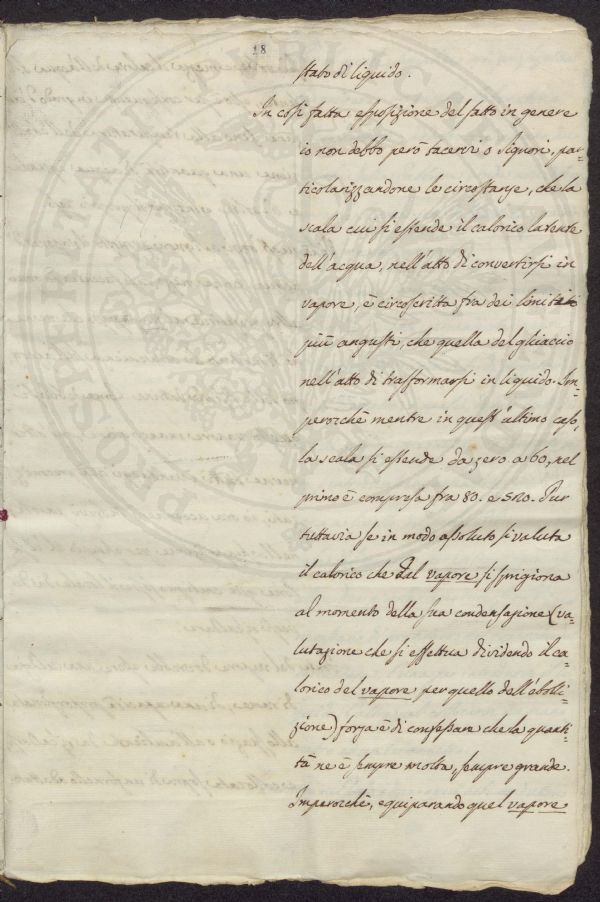 18
stato di liquido.
In così fatta esposizione del fatto in genere
io non debbo però tacervi o Signori, par-
ticolarizzandone le circostanze, che la
scala cui si estende il calorico latente
dell'acqua, nell'atto di convertirsi in
vapore, è circoscritta fra dei limiti
più angusti, che quella del ghiaccio
nell'atto di trasformarsi in liquido. Im-
perocchè mentre in quest'ultimo caso,
la scala si estende da zero a 60, nel
primo è compresa fra 80. e 520. Pur
tuttavia se in modo assoluto si valuta
il calorico che dal vapore si sprigiona
al momento della sua condensazione (va-
lutazione che si effettua dividendo il ca-
lorico del vapore per quello dell'ebolli-
zione) forza è di confessare che la quanti-
tà ne è sempre molta, sempre grande.
Imperocchè, equiparando quel vapore